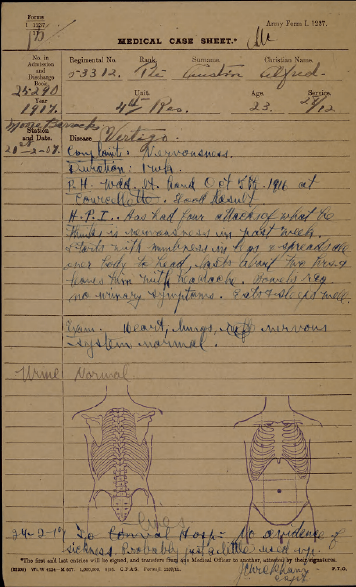 Forms
I. 1237.
Army Form I. 1237.
MEDICAL CASE SHEET.*
No. in Admission and Discharge Book
Regimental No. Rank. Surname. Christian Name.
25290
53312. Pte Alfred.
Year
Unit. Age. Service.
1917.
4th Res. 23.
Station and Date.
Disease Vertigo.
Complaint: Nervousness.
Duration: 1 wk.
P.H. Wd. Rt. hand Oct 1916 at
Courcelette. Good Result
H.P.I.. Has had four attacks of what he
thinks is nervousness in past week.
Starts with numbness in legs & spreads all
over body to head, lasts about two hrs. &
leaves him with headache. Bowels reg
no urinary symptoms. Eats & sleeps well.
Exam. Heart, lungs, nervous
system normal.
Urine Normal
To Hosp: No evidence of
sickness. Probably just a little used up.
Capt
*The first and last entries will be signed, and transfers from one Medical Officer to another, attested by their signatures.
P.T.O.